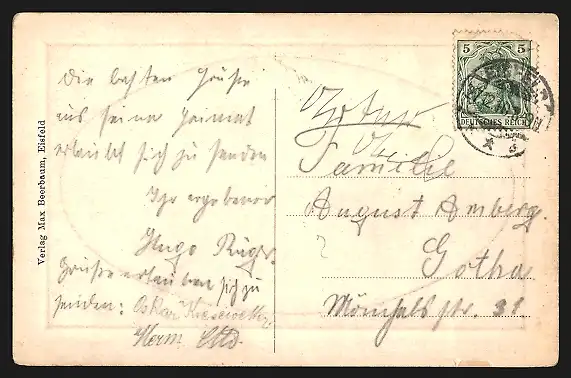 Die besten Grüße
aus seiner Heimat
erlaubt sich zu senden
Ihr ergebener
Hugo
Grüße erlauben sich zu
senden: Oskar
Herm. Otto
Verlag Max Beerbaum, Eisfeld
5 5
DEUTSCHES REICH
Familie
August Amberg.
Gotha
Mönchelsstr. 38